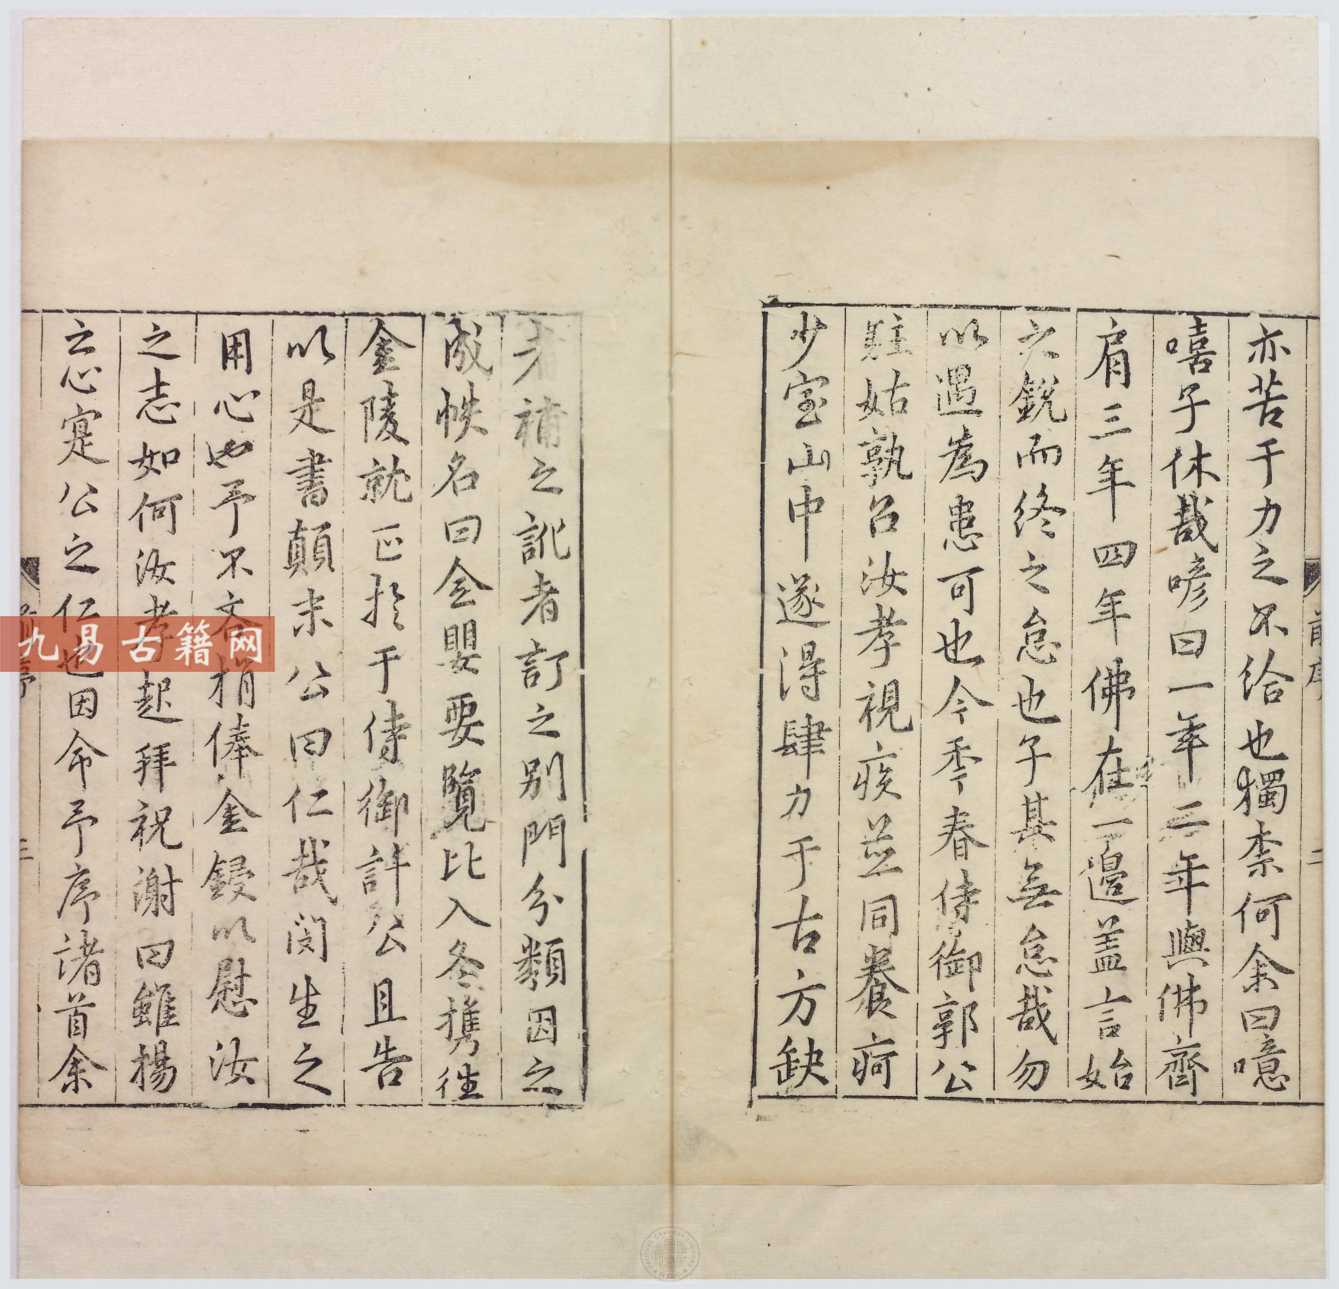 亦苦于力之不給也獨柰何余曰噫
嘻子休哉喭曰一年二年與佛齊
肩三年四年佛在一邊蓋言始
之銳而終之怠也子其無怠哉勿
以遇為患可也今季春侍御郭公
駐姑孰召汝孝視疾並同養痾
少室山中遂得肆力于古方缺
者補之訛者訂之別門分類因之
成帙名曰全嬰要覽比入冬携徃
金陵就正扵于侍御許公且告
以是書顛末公曰仁哉閔生之
用心也予不吝捐俸金鋟以慰汝
之志如何汝孝起拜祝謝曰雖揚
之心寔公之仁也因命予序諸首余
前序
二
前序
三
九易古籍网